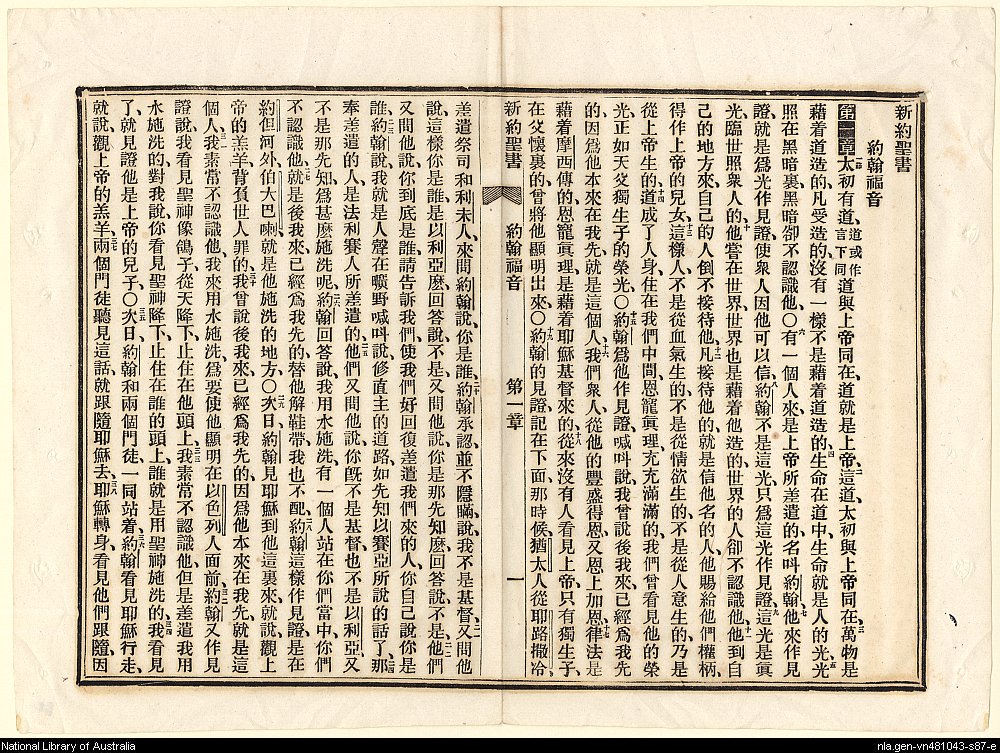 新約聖書
約翰福音
第一章太初有道、道或作言下同道與上帝同在、道就是上帝、二這道、太初與上帝同在、三萬物是
藉着道造的、凡受造的、沒有一樣不是藉着道造的、四生命在道中、生命就是人的光、五光
照在黑暗裏、黑暗卻不認識他、〇六有一個人來、是上帝所差遣的、名呌約翰、七他來作見
證、就是爲光作見證、使衆人因他可以信、八約翰不是這光、只爲這光作見證、九這光是眞
光、臨世照衆人的、十他嘗在世界、世界也是藉着他造的、世界的人卻不認識他、十一他到自
己的地方來、自己的人倒不接待他、十二凡接待他的、就是信他名的人、他賜給他們權柄、
得作上帝的兒女、十三這樣人、不是從血氣生的、不是從情欲生的、不是從人意生的、乃是
從上帝生的、十四道成了人身、住在我們中間、充充滿滿的恩寵眞理、我們曾看見他的榮
光、正如天父獨生子的榮光、〇十五約翰爲他作見證、喊呌說、我曾說後我來、已經爲我先
的、因爲他本來在我先、就是這個人、十六我們衆人、從他的豐盛得恩、又恩上加恩、十七律法是
藉着摩西傳的、恩寵眞理、是藉着耶穌基督來的、十八從來沒有人看見上帝、只有獨生子、
在父懷裏的、曾將他顯明出來、〇十九約翰的見證、記在下面、那時候、猶太人從耶路撒冷、
新約聖書 約翰福音 第一章 一
差遣祭司和利未人、來問約翰說、你是誰、二十約翰承認、並不隱瞞、說、我不是基督、二一又問他
說、這樣你是誰、是以利亞麽、回答說、不是、又問他說、你是那先知麽、回答說、不是、二二他們
又問他說、你到底是誰、請告訴我們、使我們好回復差遣我們來的人、你自己說你是
誰、二三約翰說、我就是人聲在曠野喊呌說、修直主的道路、如先知以賽亞所說的話了、二四那
奉差遣的人、是法利賽人所差遣的、二五他們又問他說、你旣不是基督、也不是以利亞、又
不是那先知、爲甚麽施洗呢、二六約翰回答說、我用水施洗、有一個人站在你們當中、你們
不認識他、二七就是後我來、已經爲我先的、替他解鞋帶、我也不配、二八約翰這樣作見證、是在
約但河外、伯大巴喇、就是他施洗的地方、〇二九次日約翰見耶穌到他這裏來、就說、觀上
帝的羔羊、背負世人罪的、三十我曾說、後我來、已經爲我先的、因爲他本來在我先、就是這
個人、三一我素常不認識他、我來用水施洗、爲要使他顯明在以色列人面前、三二約翰又作見
證說、我看見聖神、像鴿子從天降下、止住在他頭上、三三我素常不認識他、但是差遣我用
水施洗的、對我說、你看見聖神降下、止住在誰的頭上、誰就是用聖神施洗的、三四我看見
了、就見證他是上帝的兒子、〇三五次日約翰和兩個門徒、一同站着、三六約翰看見耶穌行走、
就說、觀上帝的羔羊、三七兩個門徒聽見這話、就跟隨耶穌去、三八耶穌轉身看見他們跟隨、因
National Library of Australia
nla.gen-vn481043-s87-e